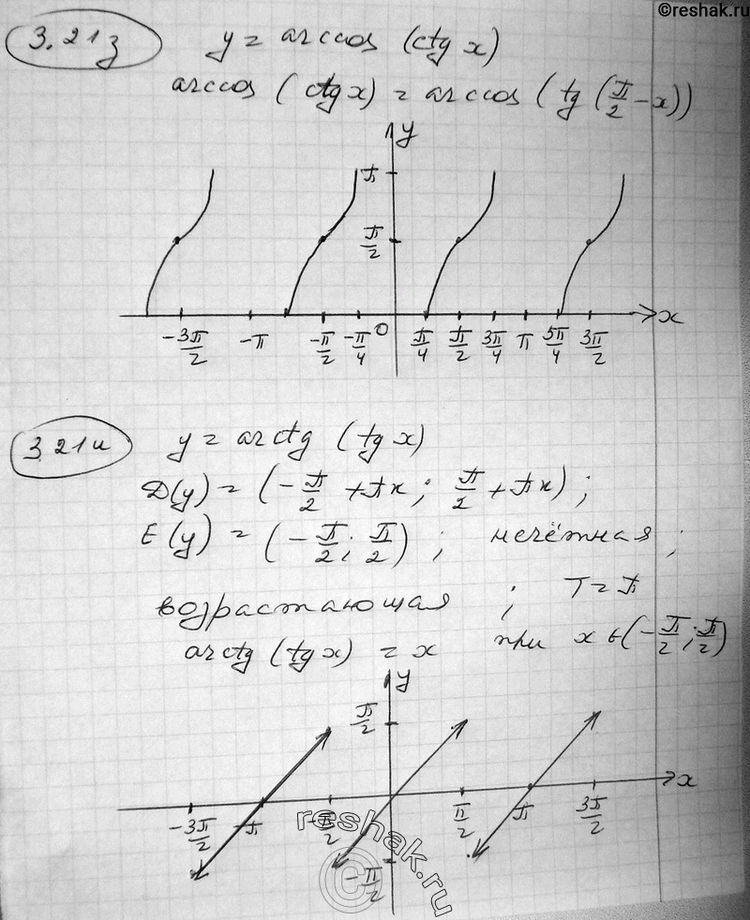 ©reshak.ru
3.21з y = arccos (ctg x)
arccos (ctg x) = arccos (tg (π/2 - x))
y
π
π/2
-3π/2 -π -π/2 -π/4 0 π/4 π/2 3π/4 π 5π/4 3π/2 x
3.21и y = arctg (tg x)
D(y) = (-π/2 + πк; π/2 + πк);
E(y) = (-π/2; π/2); нечётная;
возрастающая; T = π
arctg (tg x) = x при x ∈ (-π/2; π/2)
y
π/2
x
-3π/2 -π -π/2 π/2 π 3π/2
-π/2
reshak.ru
©